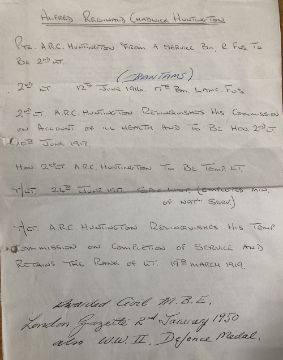 ALFRED REGINALD CHADWICK HUNTINGTON
PTE. A.R.C. HUNTINGTON FROM A SERVICE BN. R. FUS TO
BE 2ND LT.
(BANTAMS)
2ND LT. 12TH JUNE 1916. 17TH BN. LANC. FUS
2ND LT A.R.C HUNTINGTON RELINQUISHES HIS COMMISSION
ON ACCOUNT OF ILL HEALTH AND TO BE HON 2ND LT
10TH JUNE 1917
HON 2ND LT. A.R.C. HUNTINGTON TO BE TEMP. LT.
T/LT. 24TH JUNE 1917 (EMPLOYED MIN.
OF NAT SERV)
T/LT. A.R.C HUNTINGTON RELINQUISHES HIS TEMP.
COMMISSION ON COMPLETION OF SERVICE AND
RETAINS THE RANK OF LT. 19TH MARCH 1919.
awarded Civil M.B.E.
London Gazette 2nd January 1950
also W.W.II. Defence Medal.